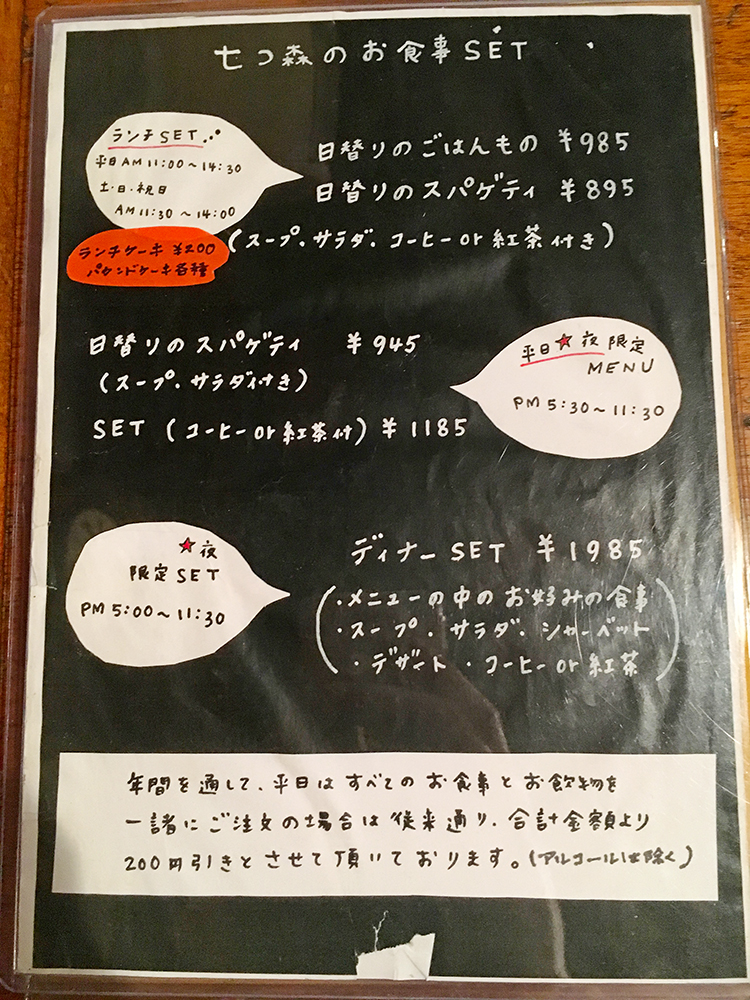 七つ森のお食事SET
ランチSET
平日AM11:00〜14:30
土・日・祝日
AM11:30〜14:00
日替りのごはんもの ¥985
日替りのスパゲティ ¥895
(スープ、サラダ、コーヒーor紅茶付き)
ランチケーキ ¥200
パウンドケーキ各種
日替りのスパゲティ ¥945
(スープ、サラダ付き)
SET (コーヒーor紅茶付) ¥1185
平日★夜限定
MENU
PM 5:30〜11:30
★夜
限定SET
PM 5:00〜11:30
ディナーSET ¥1985
・メニューの中のお好みの食事
・スープ・サラダ・シャーベット
・デザート・コーヒーor紅茶
年間を通して、平日はすべてのお食事とお飲物を
一諸にご注文の場合は従来通り、合計金額より
200円引きとさせて頂いております。(アルコールは除く)